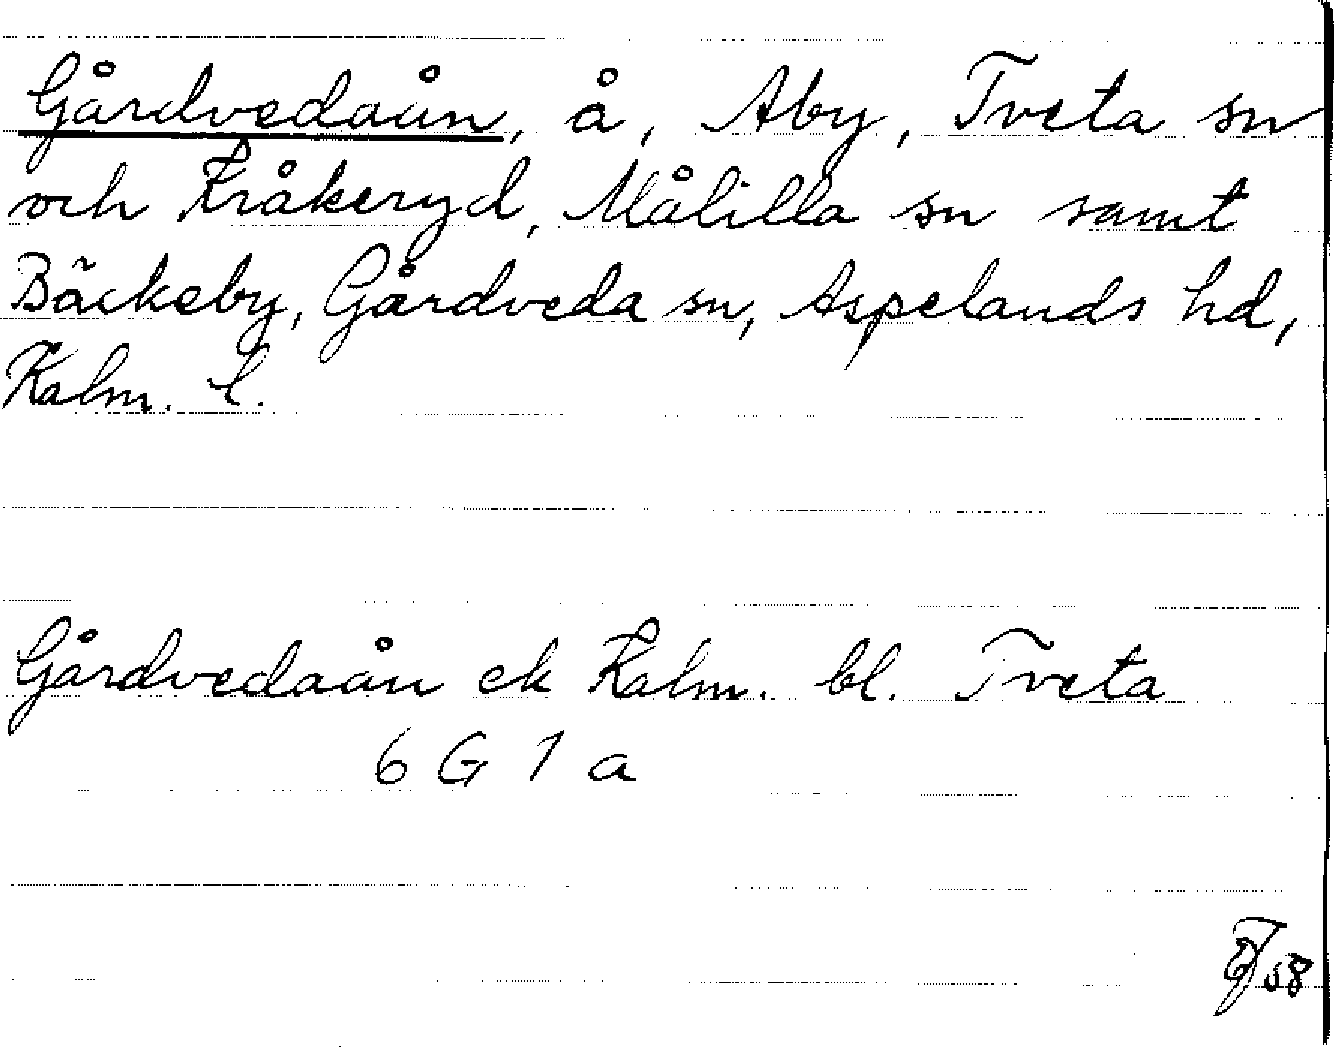 Gårdvedaån, å, Aby, Tveta sn
och Kråkeryd, Målilla sn samt
Bäckeby, Gårdveda sn, Aspelands hd,
Kalm. l.
Gårdvedaån ek Kalm. bl. Tveta
6 G 1 a
58